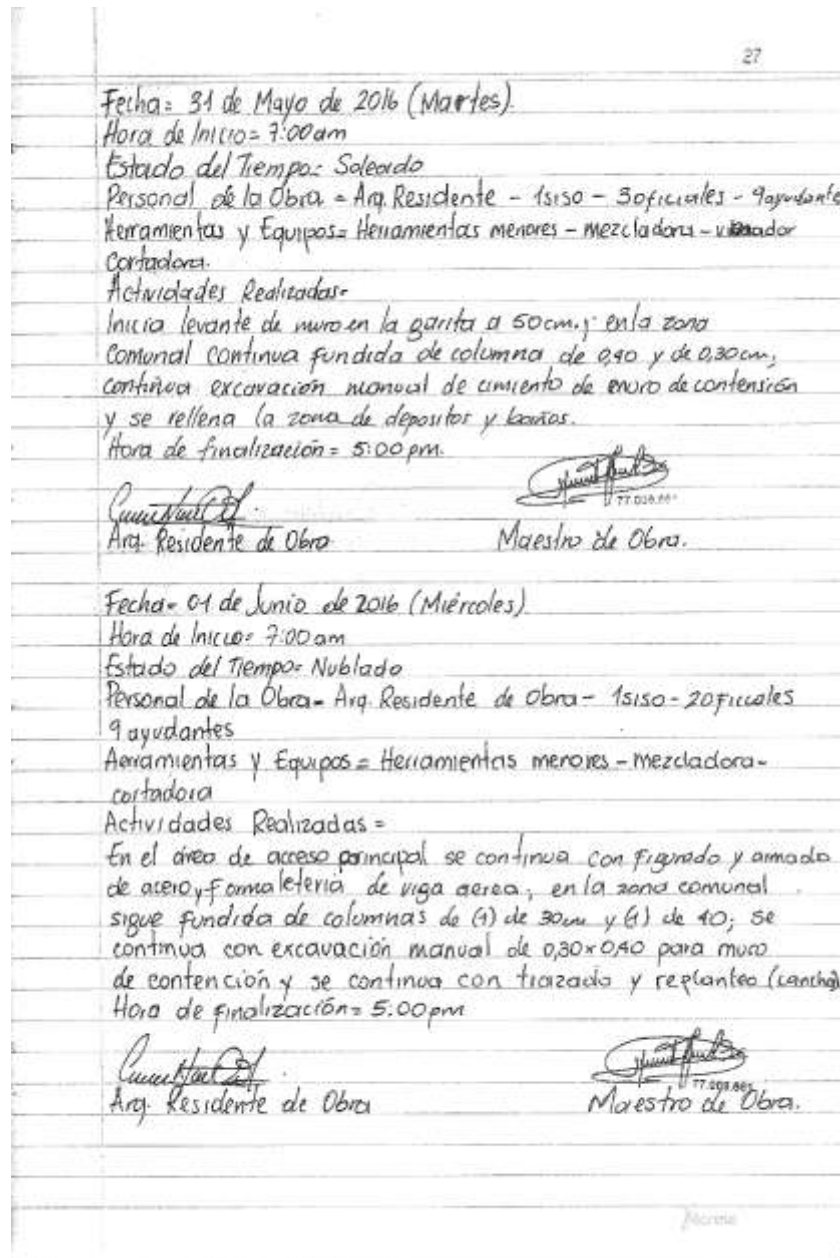 27
Fecha= 31 de Mayo de 2016 (Martes).
Hora de Inicio= 7:00 am
Estado del Tiempo= Soleado
Personal de la Obra = Arq. Residente - 1siso - 3oficiales - 9ayudante
Herramientas y Equipos= Herramientas menores - mezcladora -
Cortadora.
Actividades Realizadas=
Inicia levante de muro en la garita a 50cm.; en la zona
Comunal continua fundida de columna de 0,40 y de 0,30cm;
continua excavación manual de cimiento de muro de contensión
y se rellena la zona de depositos y baños.
Hora de finalización = 5:00 pm.
Arq. Residente de Obra
Maestro de Obra.
Fecha= 01 de Junio de 2016 (Miércoles)
Hora de Inicio= 7:00 am
Estado del Tiempo= Nublado
Personal de la Obra= Arq. Residente de Obra - 1siso - 2oficiales
9 ayudantes
Herramientas y Equipos = Herramientas menores - mezcladora -
cortadora
Actividades Realizadas =
En el área de acceso principal se continua con figurado y armado
de acero y formaleteria de viga aerea; en la zona comunal
sigue fundida de columnas de (1) de 30cm y (1) de 40; se
continua con excavación manual de 0,30x0,40 para muro
de contención y se continua con trazado y replanteo (cancha)
Hora de finalización= 5:00 pm
Arq. Residente de Obra
Maestro de Obra.
Norma